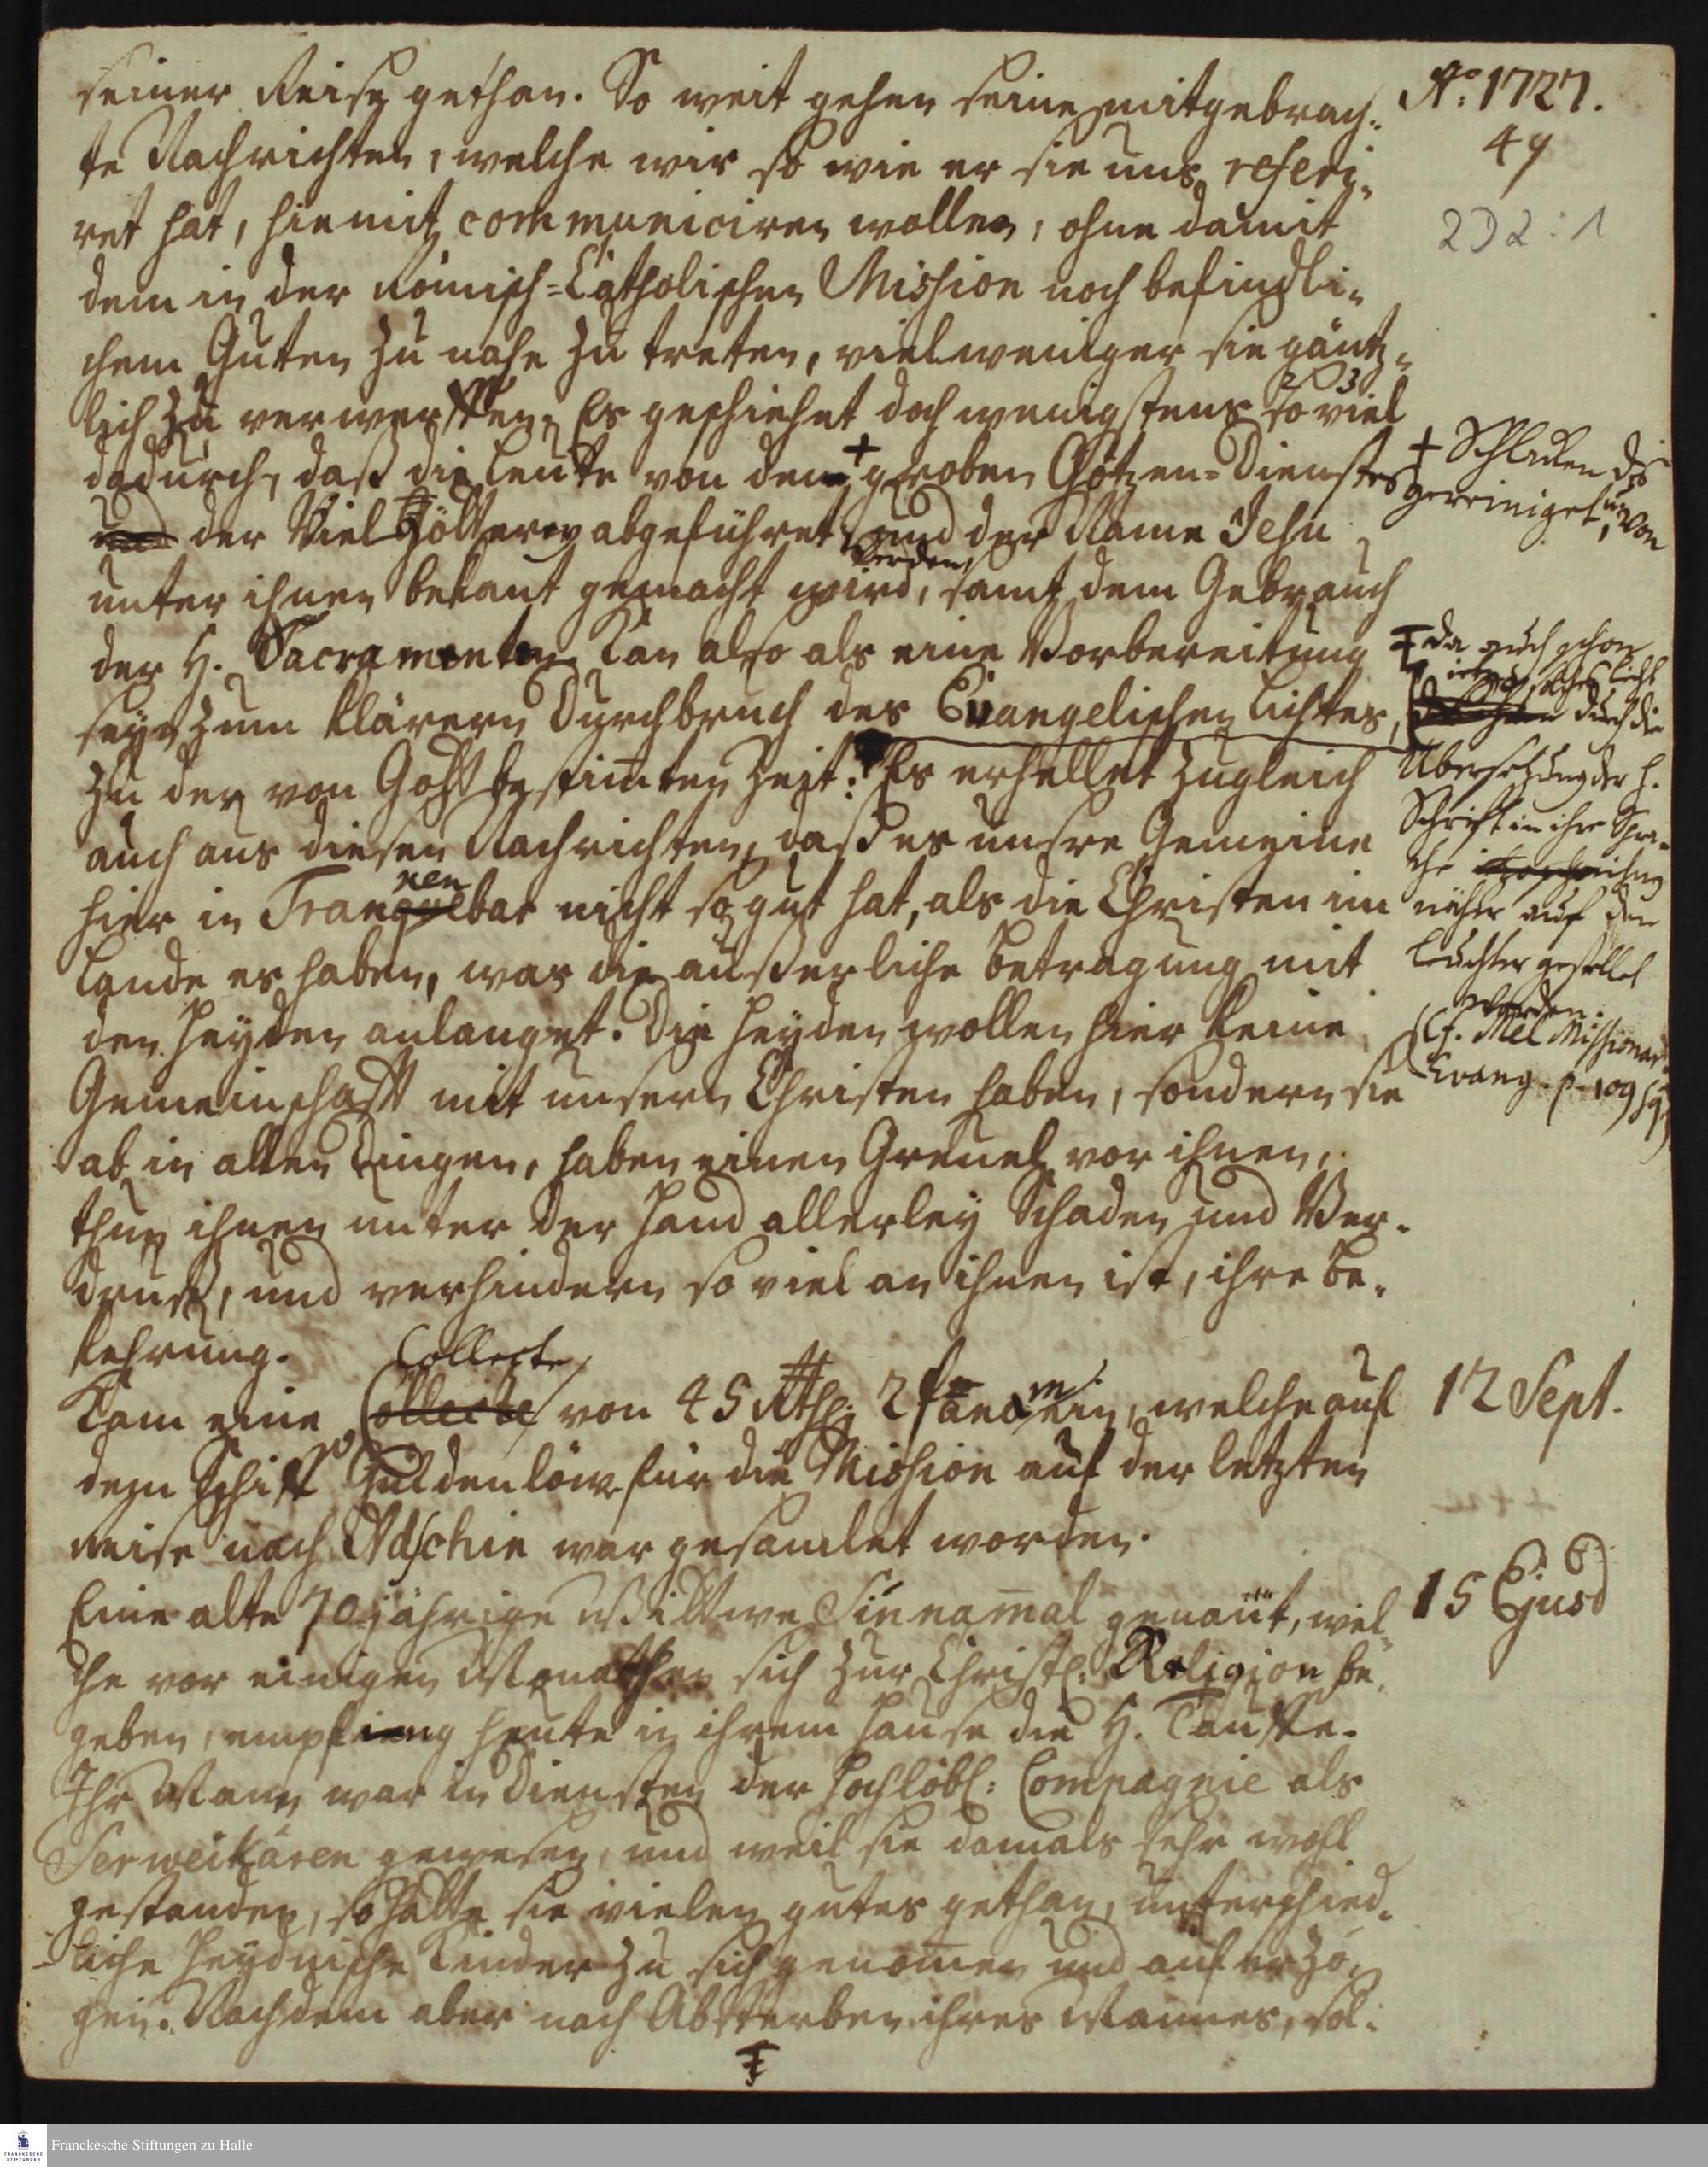 Aō: 1727.
49
2 D 2 : 1
seiner Reise gethan. So weit gehen seine mitgebrach-
te Nachrichten, welche wir so wie er sie uns referi-
ret hat, hiemit communiciren wollen, ohne damit
dem in der Römisch-Catholischen Mission noch befindli-
chem Guten zu nahe zu treten, vielweniger sie gäntz-
lich zu verwerffen. Es geschiehet doch wenigstens so viel
dadurch, daß die Leute von dem + groben Götzen-Dienstes
und der Viel Götterey abgeführet, und der Name Jesu
werden
unter ihnen bekant gemacht wird, samt dem Gebrauch
der H. Sacramenten. Kan also als eine Vorbereitung
seyn zum klärern Durchbruch des Evangelischen Lichtes,
zu der von Gott bestimten Zeit: Es erhellet zugleich
auch aus diesen Nachrichten, daß es unsre Gemeine
ken
hier in Tranquebar nicht so gut hat, als die Christen im
Lande es haben, was die äußerliche Betragung mit
den Heyden anlanget. Die Heyden wollen hier keine
Gemeinschafft mit unsern Christen haben, sondern sie
ab in allen Dingen, haben einen Greuel vor ihnen,
thun ihnen unter der Hand allerley Schaden und Ver-
druß, und verhindern so viel an ihnen ist, ihre Be-
kehrung.
+ Schlacken des
gereiniget, u. von
Ŧ da auch schon
solches Licht
durch die
Übersetzung der H.
Schrift in ihre Spra-
che
näher auf den
Leuchter gestellet
worden.
(Cf. Mel Missionar.
Evang. p. 109 sq.)
Collecte
Kam eine Collecte von 45 Rthl: 2 fano ein, welche auf
12 Sept.
dem Schiff Güldenlöw für die Mission auf der letzten
Reise nach Adschin war gesamlet worden.
Eine alte 70 jährige Wittwe Sinnam̄al genañt, wel-
15 Ejusd
che vor einigen Monathen sich zur Christl: Religion be-
geben, empfieng heute in ihrem Hause die H. Tauffe.
Ihr Mann war in Diensten der Hochlöbl: Compagnie als
Serweikáren gewesen, und weil sie damals sehr wohl
gestanden, so hatte sie vielen gutes gethan, unterschied-
liche Heydnische Kinder zu sich genom̄en und auferzo-
gen. Nachdem aber nach Absterben ihres Mannes, sol-
Ŧ
Franckesche Stiftungen zu Halle